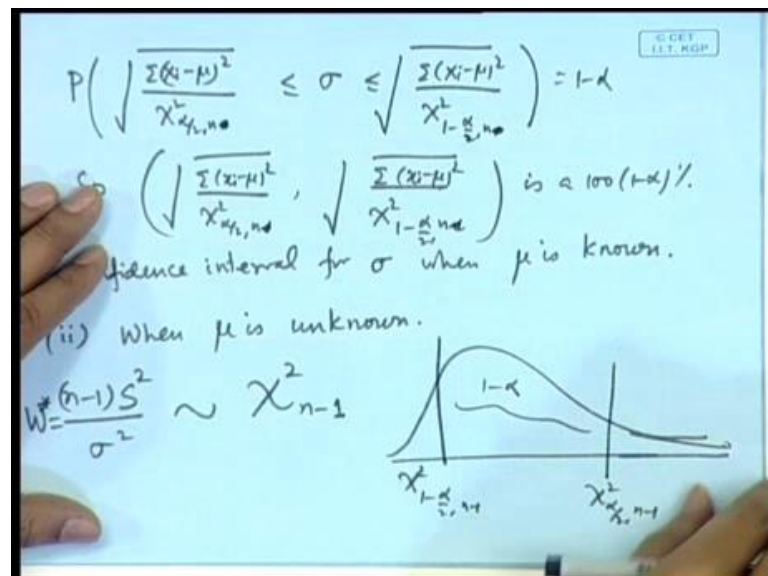 © CET
I.I.T. KGP
P( √(Σ(xi-μ)² / χ²_{α/2, n}) ≤ σ ≤ √(Σ(xi-μ)² / χ²_{1-α/2, n}) ) = 1-α
So ( √(Σ(xi-μ)² / χ²_{α/2, n}) , √(Σ(xi-μ)² / χ²_{1-α/2, n}) ) is a 100(1-α)%.
fidence interval for σ when μ is known.
(ii) When μ is unknown.
W* = (n-1)S² / σ² ~ χ²_{n-1}
1-α
χ²_{1-α/2, n-1} χ²_{α/2, n-1}